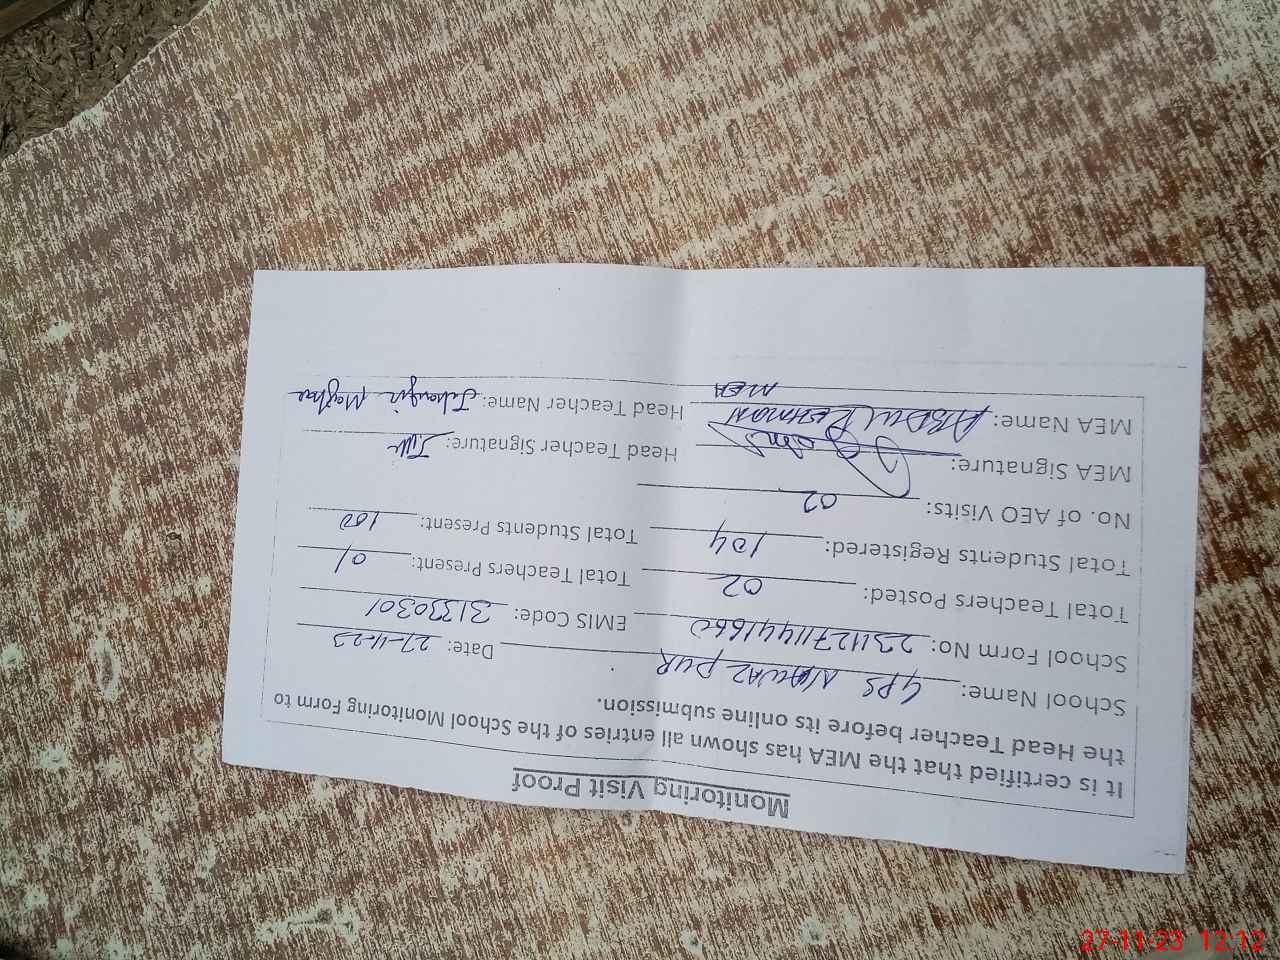 Monitoring Visit Proof
It is certified that the MEA has shown all entries of the School Monitoring Form to
the Head Teacher before its online submission.
School Name: GPS NAWAZ PUR Date: 27-11-23
School Form No: EMIS Code: 31330301
Total Teachers Posted: 02 Total Teachers Present: 01
Total Students Registered: 104 Total Students Present: 100
No. of AEO Visits: 02
MEA Signature: Head Teacher Signature:
MEA Name: ABDUL REHMAN Head Teacher Name:
MEA
27-11-23 12:12